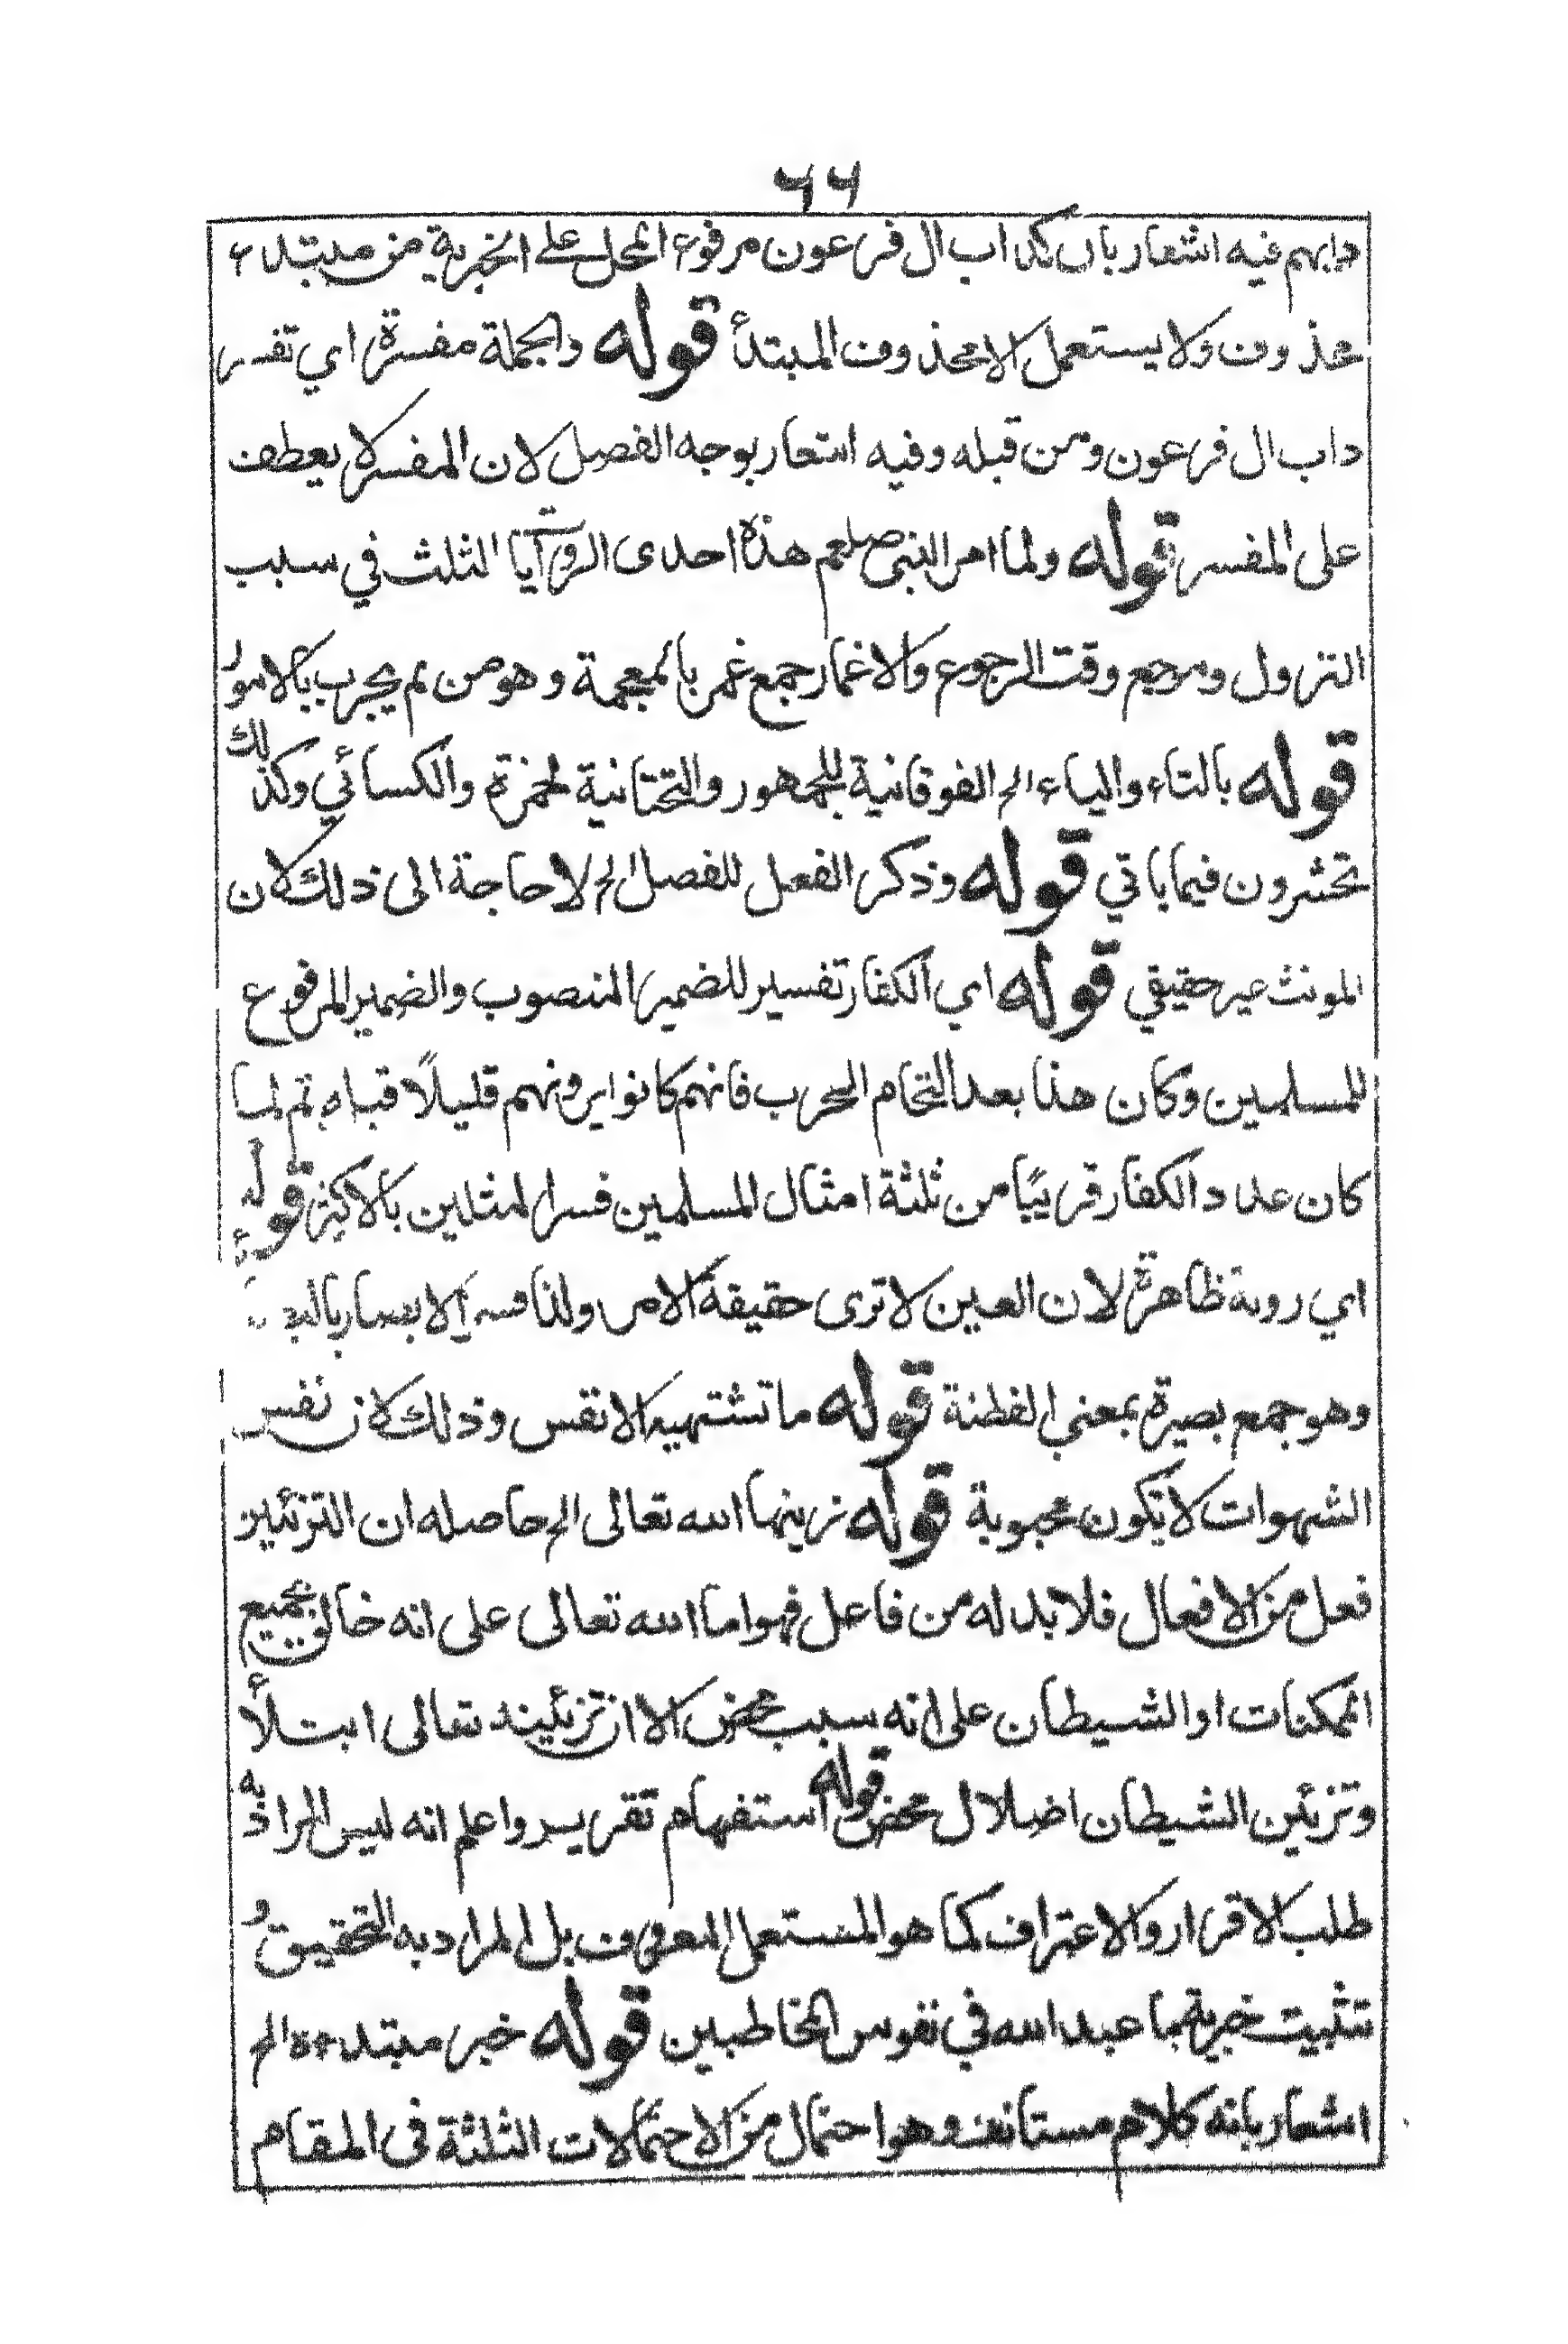 ٦٦
دابهم فيه اشعار بان كداب ال فرعون مرفوع المحل على الخبرية من مبتداء
محذوف ولا يستعمل الا محذوف المبتدأ قوله والجملة مفسرة اي تفسر
داب ال فرعون ومن قبله وفيه اشعار بوجه الفصل لان المفسر لا يعطف
على المفسر قوله ولما امر النبي صلعم هذه احدى الروايات الثلث في سبب
النزول ومرجع وقت الرجوع والاغمار جمع غمر بالمعجمة وهو من لم يجرب بالامور
قوله بالتاء والياء الخ الفوقانية للجمهور والتحتانية لحمزة والكسائي وكذلك
تحشرون فيما ياتي قوله وذكر الفعل للفصل الخ لا حاجة الى ذلك لان
المونث غير حقيقي قوله اي الكفار تفسير للضمير المنصوب والضمير المرفوع
للمسلمين وكان هذا بعد التحام الحرب فانهم كانوا يرونهم قليلًا قبله ثم لما
كان عدد الكفار قريبًا من ثلثة امثال المسلمين فسر المثلين بالاكثر قوله
اي روية ظاهرة لان العين لا ترى حقيقة الامر ولذا فسر الابصار
وهو جمع بصيرة بمعنى الفطنة قوله ما تشتهيه الانفس وذلك لان نفس
الشهوات لا تكون محبوبة قوله زينها الله تعالى الخ حاصله ان التزئين
فعل من الافعال فلا بد له من فاعل فهو اما الله تعالى على انه خالق بجميع
الممكنات او الشيطان على انه سبب محض الا ان تزئينه تعالى ابتلأ
وتزئين الشيطان اضلال محض قوله استفهام تقرير واعلم انه ليس المراد به
طلب الاقرار والاعتراف كما هو المستعمل المعروف بل المراد به التحقيق و
تثبيت خبرية بما عبد الله في نفوس المخاطبين قوله خبر مبتدءه الخ
اشعار بانه كلام مستانف وهو احتمال من الاحتمالات الثلثة في المقام